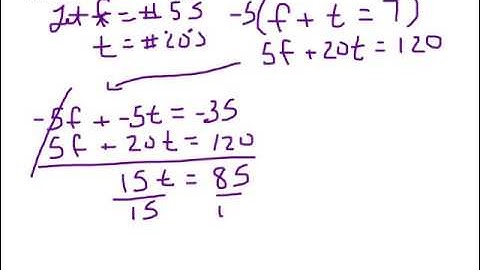 Let f = # 5s
t = # 20's
-5(f + t = 7)
5f + 20t = 120
-5f + -5t = -35
5f + 20t = 120
15t = 85
15 1